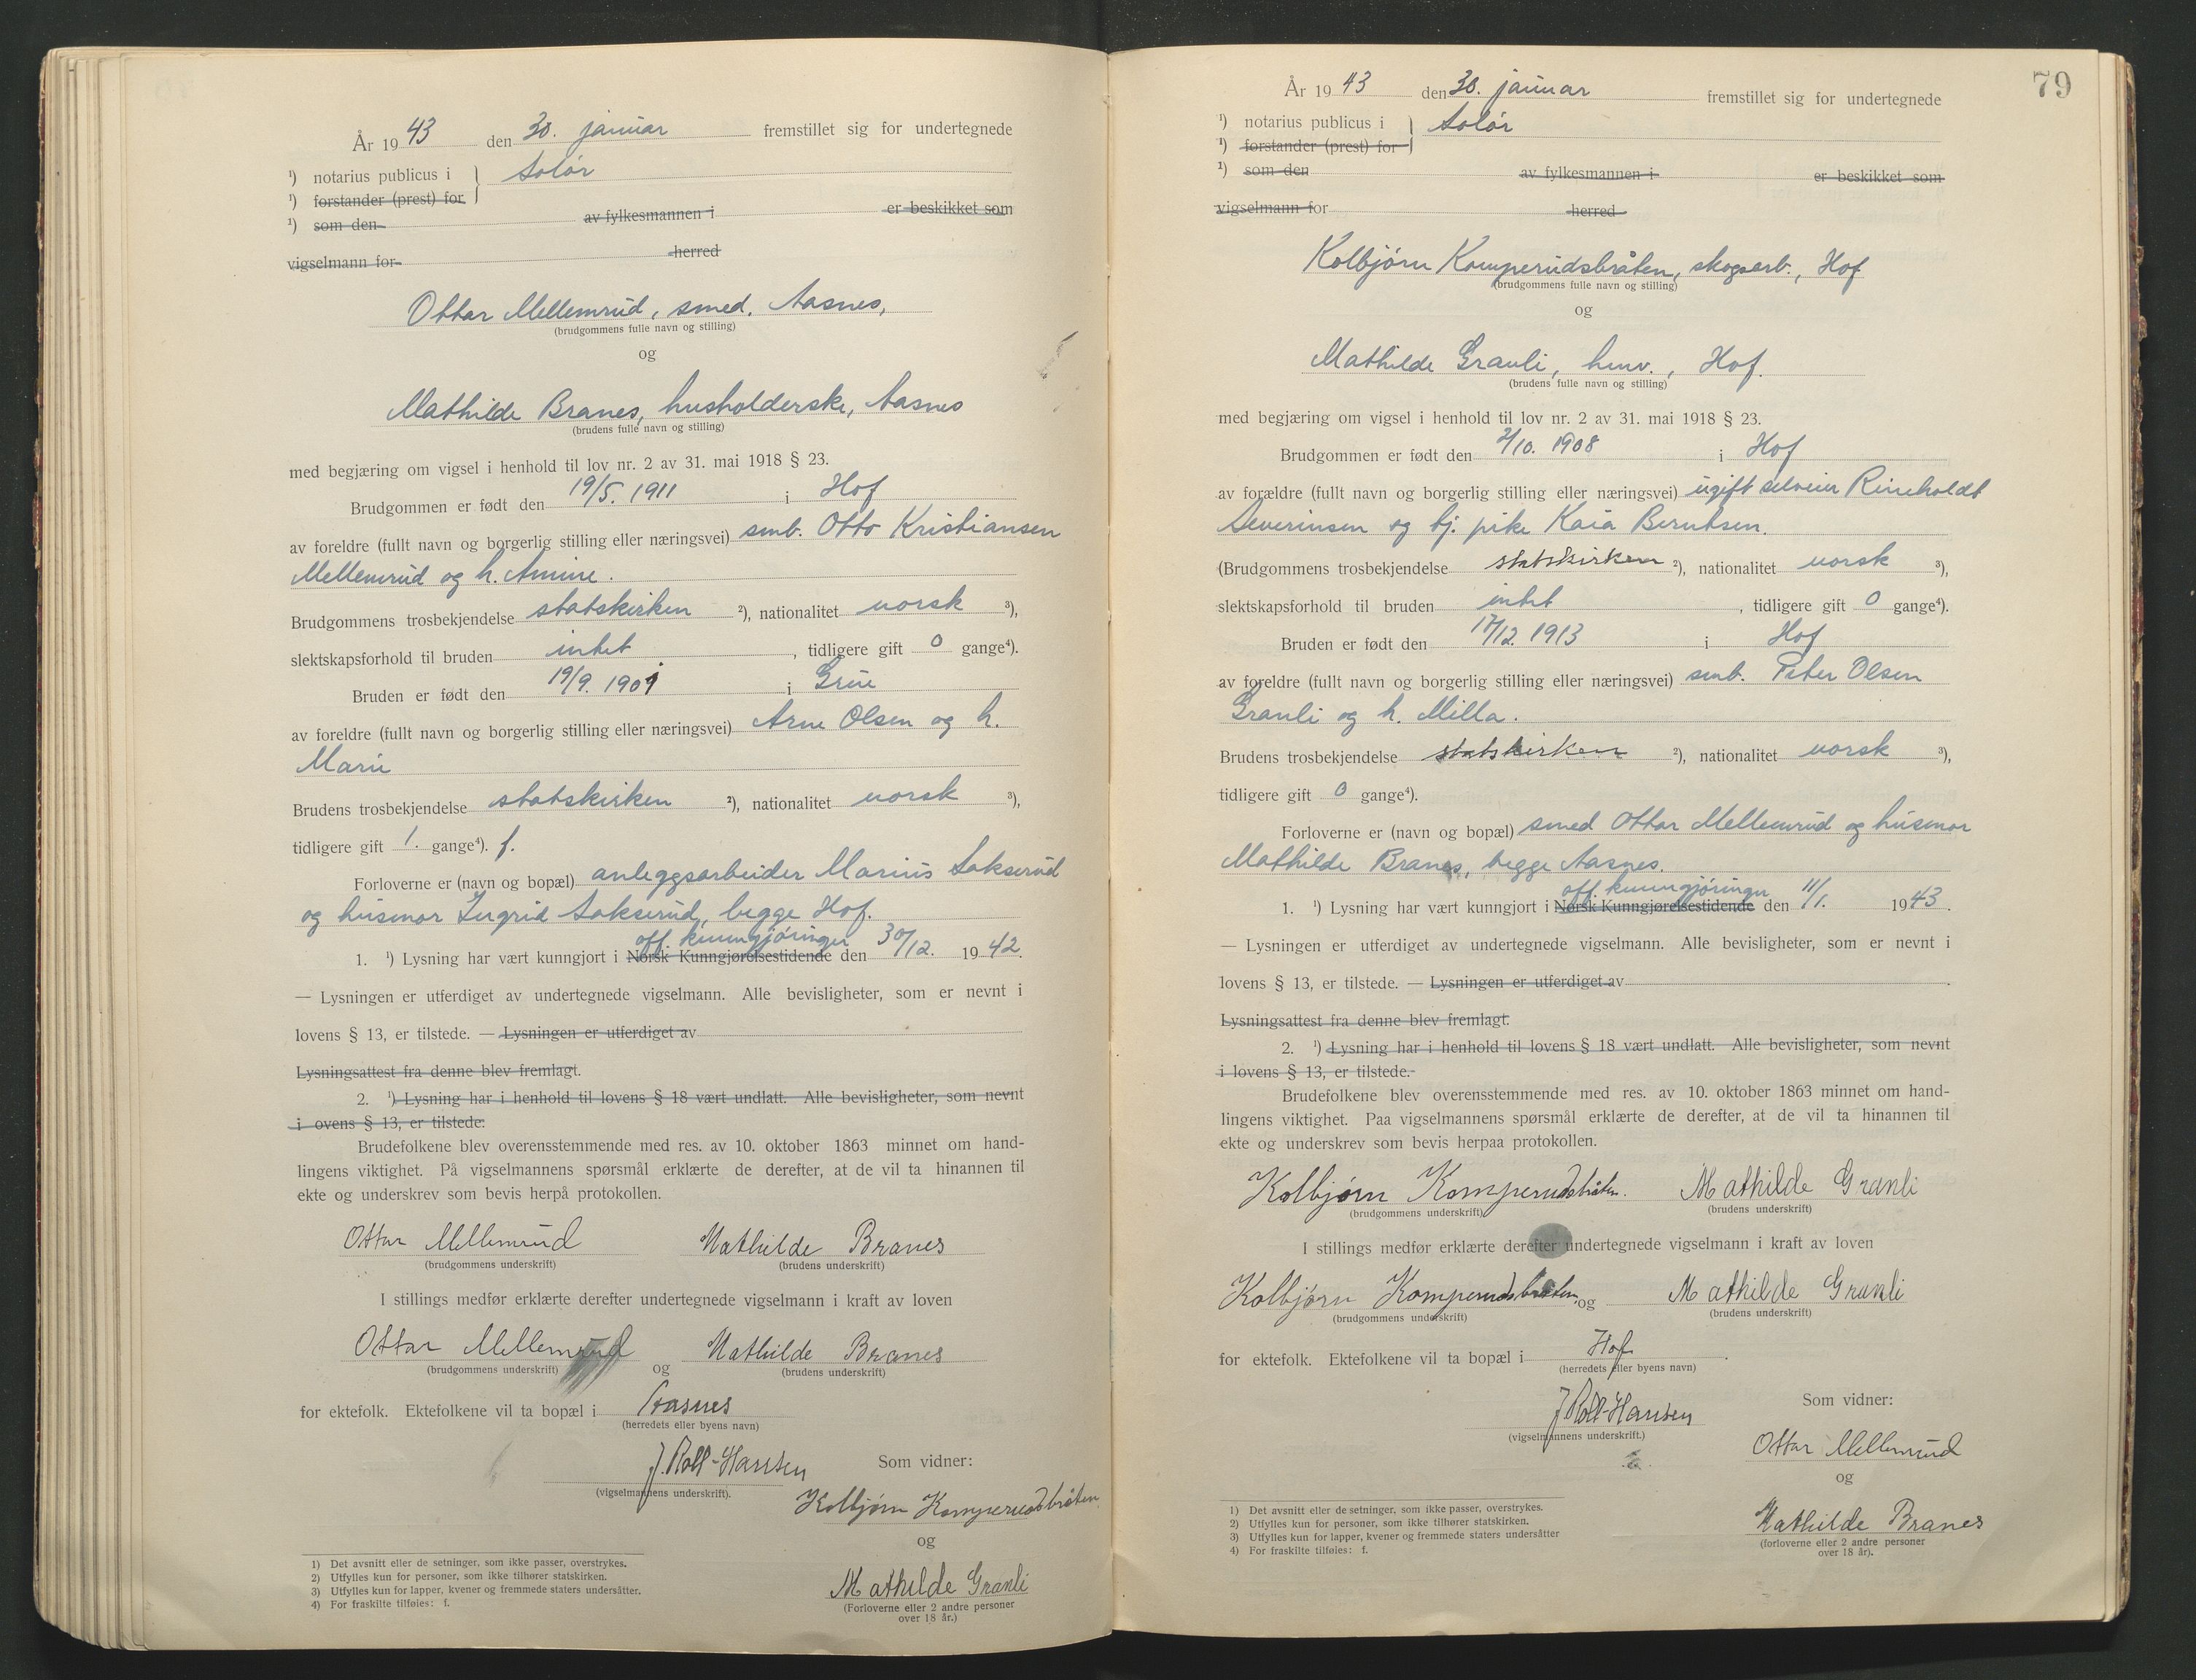 År 1943 den 30. januar fremstillet sig for undertegnede
¹) notarius publicus i } Solør
¹) forstander (prest) for
¹) som den av fylkesmannen i er beskikket som
vigselmann for herred
Ottar Mellemrud, smed, Aasnes,
(brudgommens fulle navn og stilling)
og
Mathilde Branes, husholderske, Aasnes
(brudens fulle navn og stilling)
med begjæring om vigsel i henhold til lov nr. 2 av 31. mai 1918 § 23.
Brudgommen er født den 19/5. 1911 i Hof
av foreldre (fullt navn og borgerlig stilling eller næringsvei) smb. Otto Kristiansen
Mellemrud og h. Amine.
Brudgommens trosbekjendelse statskirken ²), nationalitet norsk ³),
slektskapsforhold til bruden intet, tidligere gift 0 gange⁴).
Bruden er født den 19/9. 1901 i Grue
av foreldre (fullt navn og borgerlig stilling eller næringsvei) Arne Olsen og h.
Marie
Brudens trosbekjendelse statskirken ²), nationalitet norsk ³),
tidligere gift 1. gange⁴). f.
Forloverne er (navn og bopæl) anleggsarbeider Marius Sakserud
og husmor Ingrid Sakserud, begge Hof.
off. kunngjøringer
1. ¹) Lysning har vært kunngjort i Norsk Kunngjørelsestidende den 30/12. 1942.
— Lysningen er utferdiget av undertegnede vigselmann. Alle bevisligheter, som er nevnt i
lovens § 13, er tilstede. — Lysningen er utferdiget av
Lysningsattest fra denne blev fremlagt.
2. ¹) Lysning har i henhold til lovens § 18 vært undlatt. Alle bevisligheter, som nevnt
i ovens § 13, er tilstede.
Brudefolkene blev overensstemmende med res. av 10. oktober 1863 minnet om hand-
lingens viktighet. På vigselmannens spørsmål erklærte de derefter, at de vil ta hinannen til
ekte og underskrev som bevis herpå protokollen.
Ottar Mellemrud Mathilde Branes
(brudgommens underskrift) (brudens underskrift)
I stillings medfør erklærte derefter undertegnede vigselmann i kraft av loven
Ottar Mellemrud og Mathilde Branes
(brudgommens underskrift) (brudens underskrift)
for ektefolk. Ektefolkene vil ta bopæl i Aasnes
(herredets eller byens navn)
J. Roll-Hansen Som vidner:
(vigselmannens underskrift).
Kolbjørn Komperudsbråten
og
Mathilde Granli
(Forloverne eller 2 andre personer
over 18 år.)
1) Det avsnitt eller de setninger, som ikke passer, overstrykes.
2) Utfylles kun for personer, som ikke tilhører statskirken.
3) Utfylles kun for lapper, kvener og fremmede staters undersåtter.
4) For fraskilte tilføies: f.
79
År 1943 den 30. januar fremstillet sig for undertegnede
¹) notarius publicus i } Solør
¹) forstander (prest) for
¹) som den av fylkesmannen i er beskikket som
vigselmann for herred
Kolbjørn Komperudsbråten, skogsarb., Hof
(brudgommens fulle navn og stilling)
og
Mathilde Granli, henv., Hof.
(brudens fulle navn og stilling)
med begjæring om vigsel i henhold til lov nr. 2 av 31. mai 1918 § 23.
Brudgommen er født den 2/10. 1908 i Hof
av forældre (fullt navn og borgerlig stilling eller næringsvei) ugift selveier Rineholdt
Severinsen og tj. pike Kaia Berntsen.
(Brudgommens trosbekjendelse statskirken ²), nationalitet norsk ³),
slektskapsforhold til bruden intet, tidligere gift 0 gange⁴).
Bruden er født den 17/12. 1913 i Hof
av foreldre (fullt navn og borgerlig stilling eller næringsvei) smb. Peter Olsen
Granli og h. Milla.
Brudens trosbekjendelse statskirken ²), nationalitet norsk ³),
tidligere gift 0 gange⁴).
Forloverne er (navn og bopæl) smed Ottar Mellemrud og husmor
Mathilde Branes, begge Aasnes.
off. kunngjøringer
1. ¹) Lysning har vært kunngjort i Norsk Kunngjørelsestidende den 11/1. 1943.
— Lysningen er utferdiget av undertegnede vigselmann. Alle bevisligheter, som er nevnt i
lovens § 13, er tilstede. — Lysningen er utferdiget av
Lysningsattest fra denne blev fremlagt.
2. ¹) Lysning har i henhold til lovens § 18 vært undlatt. Alle bevisligheter, som nevnt
i lovens § 13, er tilstede.
Brudefolkene blev overensstemmende med res. av 10. oktober 1863 minnet om hand-
lingens viktighet. Paa vigselmannens spørsmål erklærte de derefter, at de vil ta hinannen til
ekte og underskrev som bevis herpaa protokollen.
Kolbjørn Komperudsbråten. Mathilde Granli
(brudgommens underskrift) (brudens underskrift)
I stillings medfør erklærte derefter undertegnede vigselmann i kraft av loven
Kolbjørn Komperudsbråten og Mathilde Granli
(brudgommens underskrift) (brudens underskrift)
for ektefolk. Ektefolkene vil ta bopæl i Hof.
(herredets eller byens navn)
J Roll-Hansen Som vidner:
(vigselmannens underskrift.)
Ottar Mellemrud
og
Mathilde Branes
(forloverne eller 2 andre personer
over 18 år).
1) Det avsnitt eller de setninger, som ikke passer, overstrykes.
2) Utfylles kun for personer, som ikke tilhører statskirken.
3) Utfylles kun for lapper, kvener og fremmede staters undersåtter
4) For fraskilte tilføies: f.